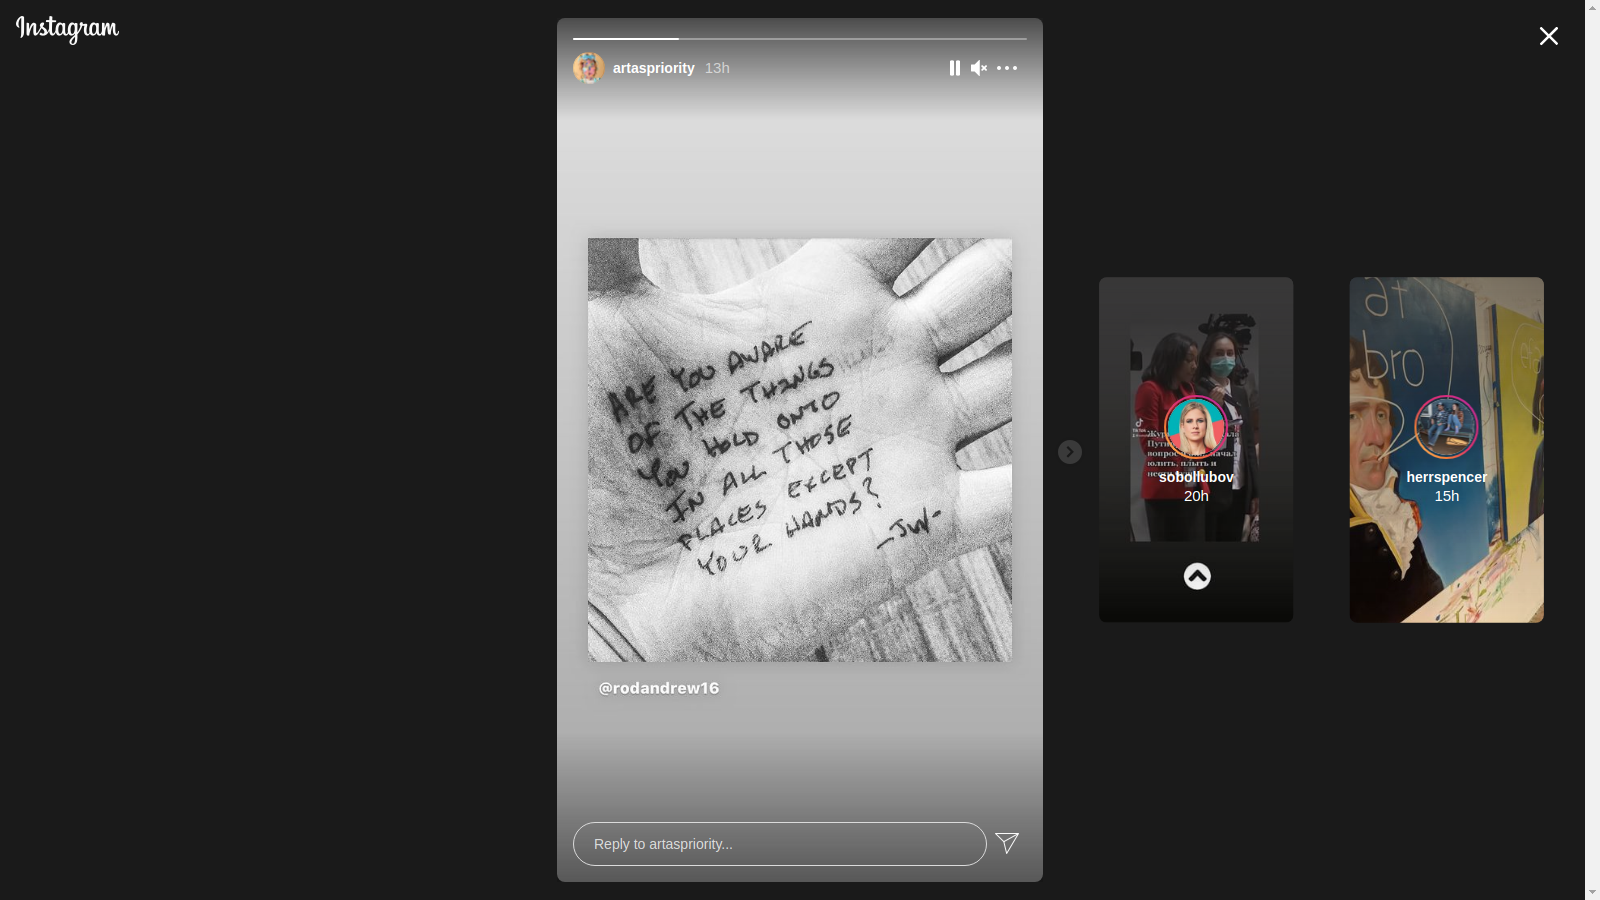 Instagram
artaspriority 13h
ARE YOU AWARE
OF THE THINGS
YOU HOLD ONTO
IN ALL THOSE
PLACES EXCEPT
YOUR HANDS?
-JW-
@rodandrew16
Reply to artaspriority...
at
bro
вопрос
юлить, плыть и
sobollubov
20h
herrspencer
15h